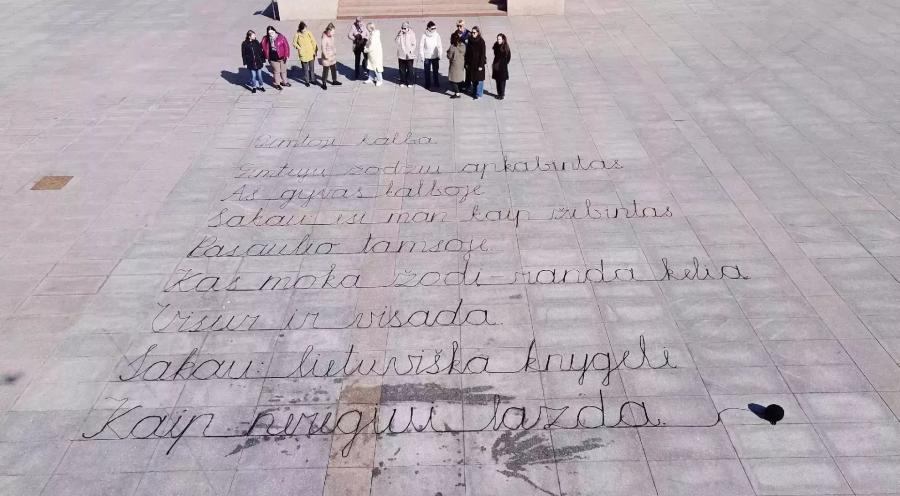 Gimtoji kalba
Gimtųjų žodžių apkabintas
Aš gyvas kalboje
Sakau: esi man kaip žibintas
Pasaulio tamsoje
Kas moka žodį – randa kelią
Visur ir visada.
Sakau: lietuviška knygelė
Kaip neregiui lazda.